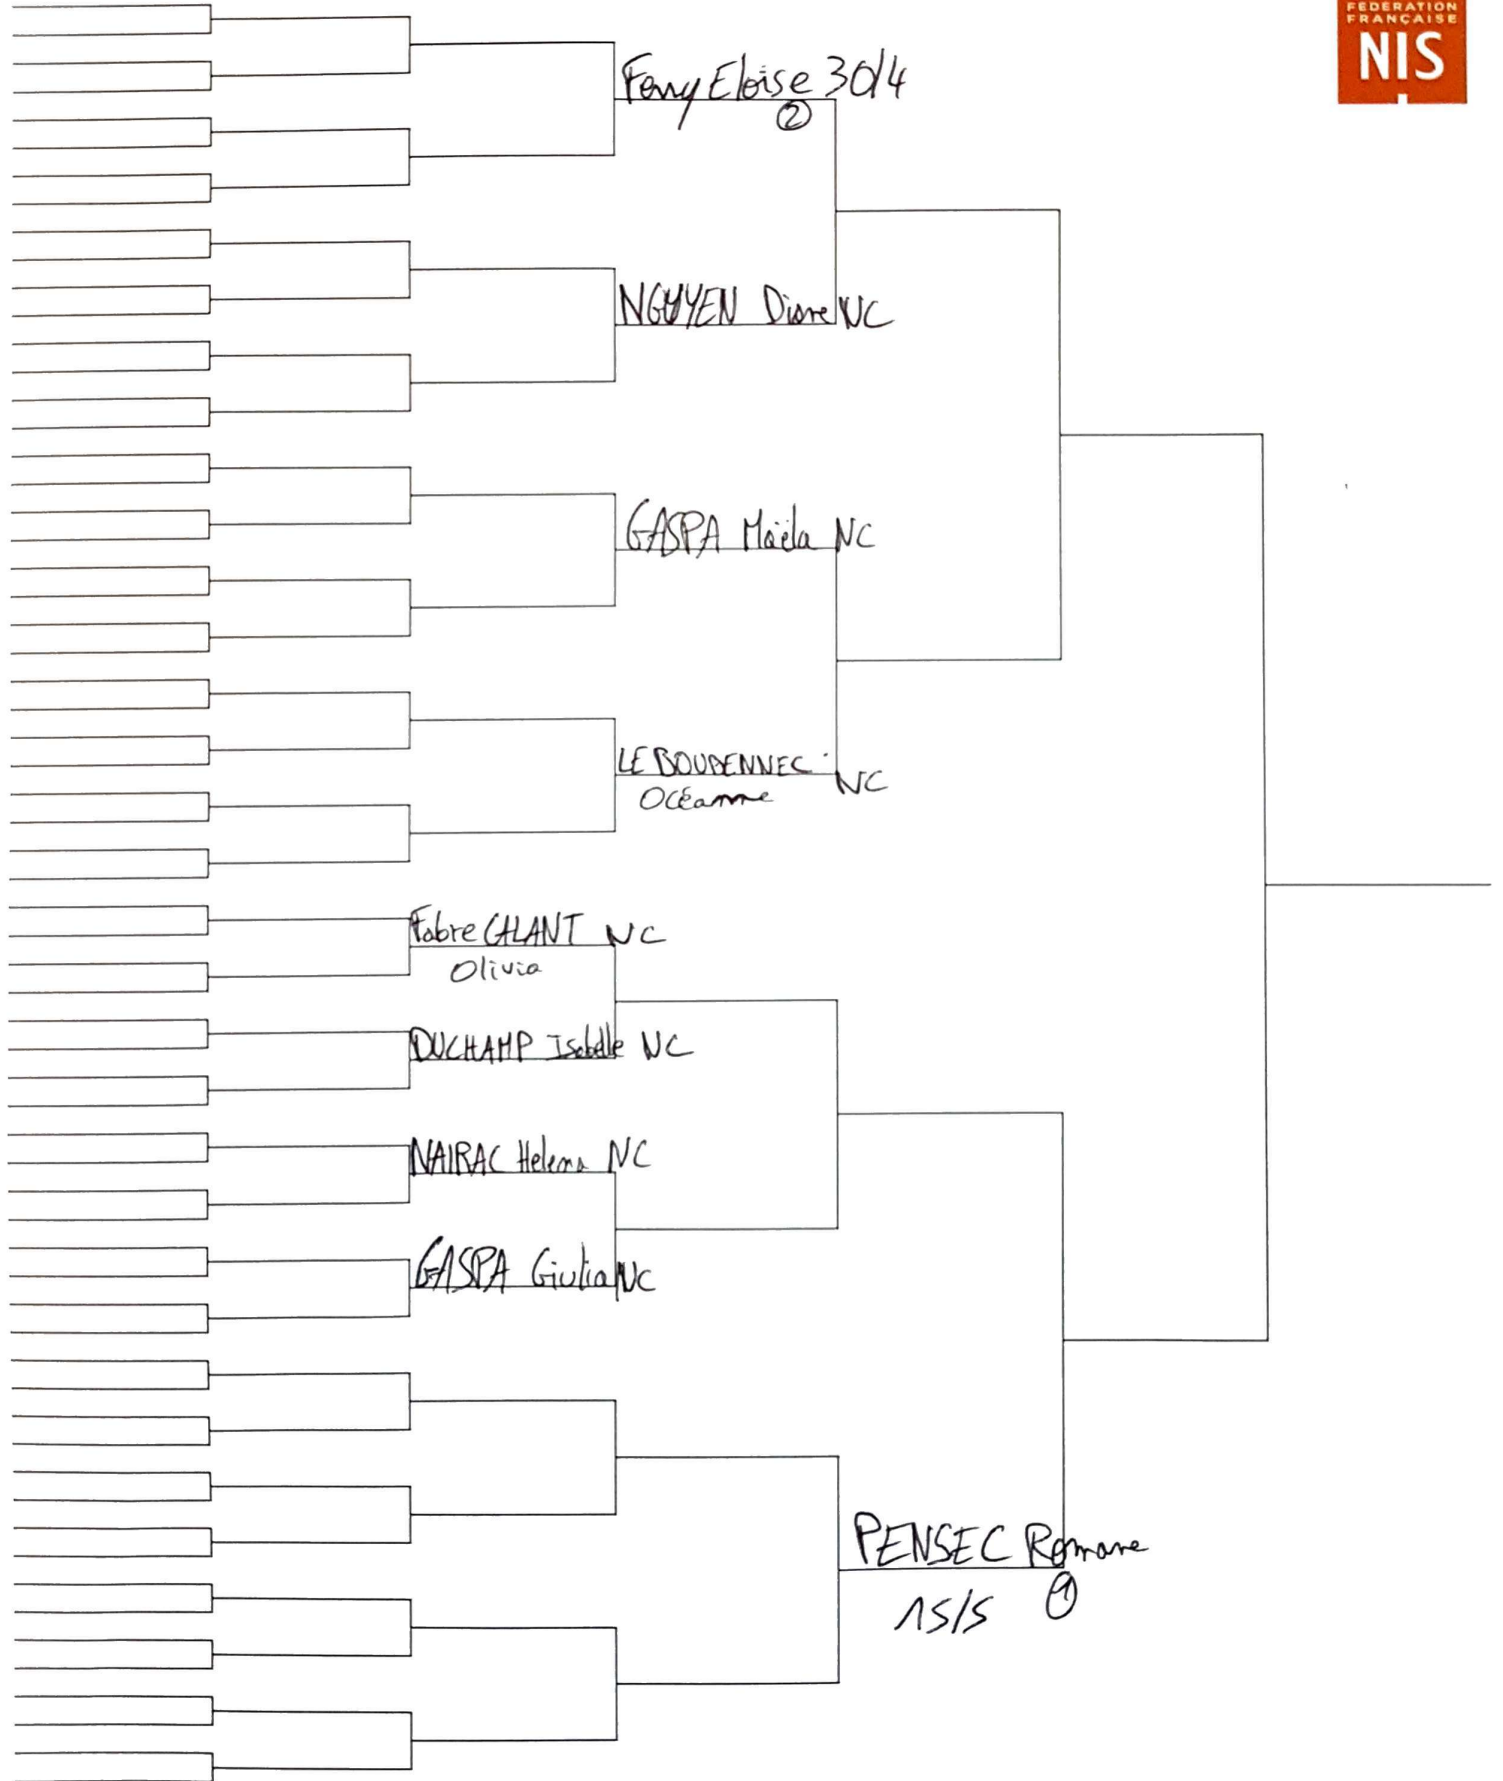 FEDERATION
FRANÇAISE
NIS
Eloise 30/4
②
NGUYEN Diane NC
GASPA Maëla NC
LE BOUDENNEC NC
Océanne
Fabre GALANT NC
Olivia
DUCHAMP Isabelle NC
NAIRAC Helena NC
GASPA Giulia NC
PENSEC Romane
15/5 ①